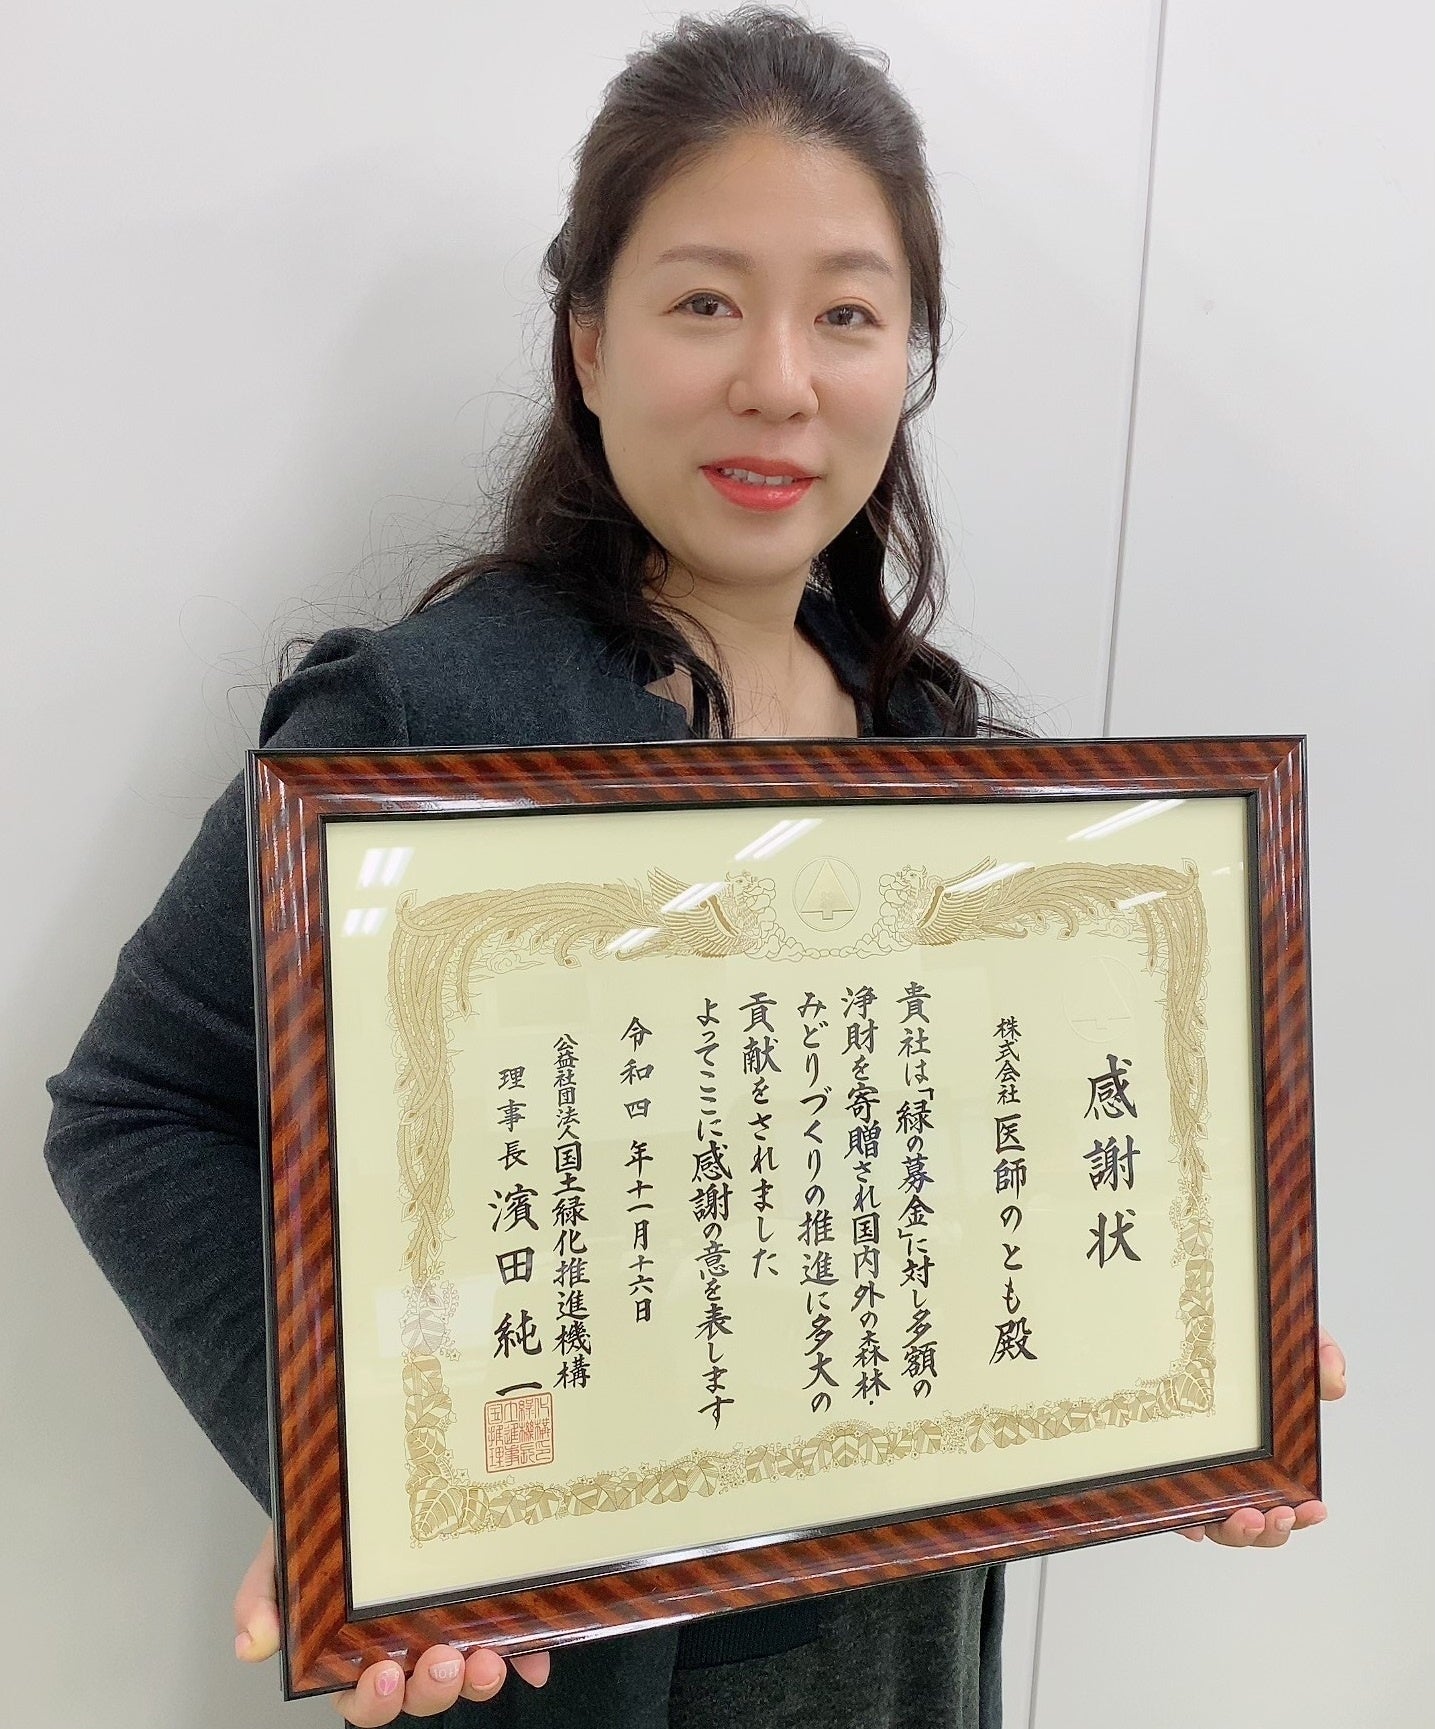 感謝状
株式会社 医師のとも殿
貴社は「緑の募金」に対し多額の
浄財を寄贈され国内外の森林・
みどりづくりの推進に多大の
貢献をされました
よってここに感謝の意を表します
令和四年十一月十六日
公益社団法人国土緑化推進機構
理事長 濱田純一